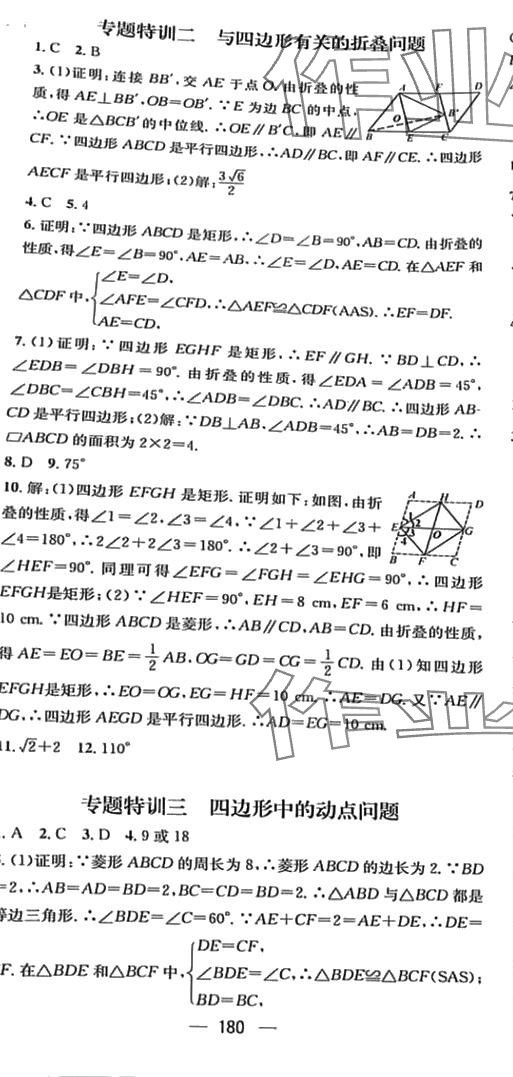 专题特训二 与四边形有关的折叠问题
1.C 2.B
3.(1)证明:连接 BB′,交 AE 于点 O.由折叠的性
质,得 AE⊥BB′,OB=OB′.∵E 为边 BC 的中点,
∴OE 是△BCB′的中位线.∴OE∥B′C,即 AE∥
CF.∵四边形 ABCD 是平行四边形,∴AD∥BC,即 AF∥CE.∴四边形
AECF 是平行四边形;(2)解:3√6/2
4.C 5.4
6.证明:∵四边形 ABCD 是矩形,∴∠D=∠B=90°,AB=CD.由折叠的
性质,得∠E=∠B=90°,AE=AB,∴∠E=∠D,AE=CD.在△AEF 和
△CDF 中,{∠E=∠D,
∠AFE=∠CFD,∴△AEF≌△CDF(AAS).∴EF=DF.
AE=CD,
7.(1)证明:∵四边形 EGHF 是矩形,∴EF∥GH.∵BD⊥CD,∴
∠EDB=∠DBH=90°.由折叠的性质,得∠EDA=∠ADB=45°,
∠DBC=∠CBH=45°,∴∠ADB=∠DBC.∴AD∥BC.∴四边形 AB-
CD 是平行四边形;(2)解:∵DB⊥AB,∠ADB=45°,∴AB=DB=2.∴
□ABCD 的面积为 2×2=4.
8.D 9.75°
10.解:(1)四边形 EFGH 是矩形.证明如下:如图,由折
叠的性质,得∠1=∠2,∠3=∠4,∵∠1+∠2+∠3+
∠4=180°,∴2∠2+2∠3=180°.∴∠2+∠3=90°,即
∠HEF=90°.同理可得∠EFG=∠FGH=∠EHG=90°,∴四边形
EFGH是矩形;(2)∵∠HEF=90°,EH=8 cm,EF=6 cm,∴HF=
10 cm.∵四边形 ABCD 是菱形,∴AB∥CD,AB=CD.由折叠的性质,
得 AE=EO=BE=1/2 AB,OG=GD=CG=1/2 CD.由(1)知四边形
EFGH是矩形,∴EO=OG,EG=HF=10 cm.∴AE=DG.又∵AE∥
DG,∴四边形 AEGD 是平行四边形.∴AD=EG=10 cm.
11.√2+2 12.110°
专题特训三 四边形中的动点问题
.A 2.C 3.D 4.9 或 18
.(1)证明:∵菱形 ABCD 的周长为 8,∴菱形 ABCD 的边长为 2.∵BD
=2,∴AB=AD=BD=2,BC=CD=BD=2.∴△ABD 与△BCD 都是
等边三角形.∴∠BDE=∠C=60°.∵AE+CF=2=AE+DE,∴DE=
F.在△BDE 和△BCF 中,{DE=CF,
∠BDE=∠C,∴△BDE≌△BCF(SAS);
BD=BC,
— 180 —